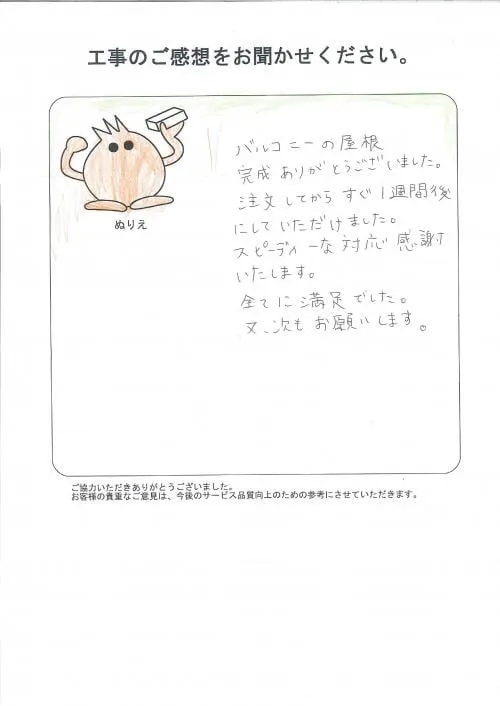 工事のご感想をお聞かせください。
ぬりえ
バルコニーの屋根
完成ありがとうございました。
注文してからすぐ1週間後
にしていただけました。
スピーディーな対応感謝
いたします。
全てに満足でした。
又、次もお願いします。
ご協力いただきありがとうございました。
お客様の貴重なご意見は、今後のサービス品質向上のための参考にさせていただきます。